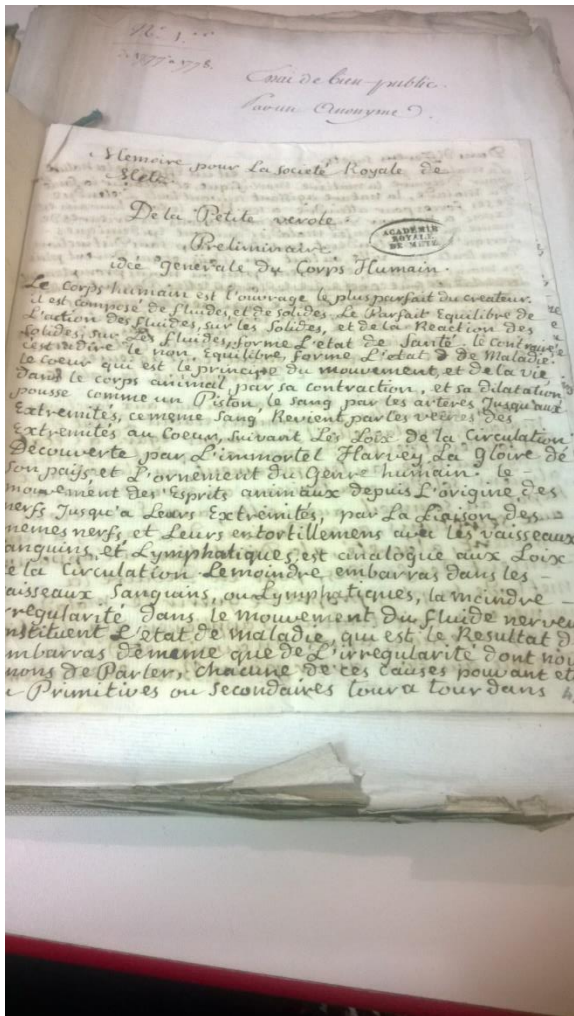 N.º 3.
de 1777 a 1778.
Essai de bien-public.
Par un Anonyme
Memoire pour La societé Royale de
Metz.
De la Petite verole.
Preliminaire
ACADÉMIE
ROYALE
DE METZ
ideé Generale du Corps Humain.
Le Corps humain est l'ouvrage le plus parfait du createur.
il est composé de fluides, et de solides. Le Parfait Equilibre de
L'action des fluides, sur les Solides, et de la Reaction des
Solides, sur Les fluides, forme L'etat de Santé. le contraire
c'est adire le non, Equilibre, forme L'etat de Maladie.
le coeur qui est le principe du mouvement, et de la vie
dans le corps animal, par sa contraction, et sa dilatation
pousse comme un Piston, le sang par les arteres Jusqu'aux
Extremités, ce meme Sang, Revient par les veines des
Extremités au Coeur, suivant Les Loix de la Circulation
Découverte par L'immortel Harvey, La Gloire dé
son païs, et L'ornement du Genre humain. le -
mouvement des Esprits animaux depuis L'origine des
nerfs Jusqu'a Leurs Extremités, par La Liaison des -
memes nerfs, et Leurs entortillemens avec les vaisseaux
anguins, et Lymphatiques, est analogue aux Loix
e la Circulation. Le moindre embarras dans les -
aisseaux Sanguins, ou Lymphatiques, la moindre -
rregularité dans le mouvement du fluide nerveu
nstituent L'état de maladie, qui est le Resultat d
mbarras dememe que de L'irregularité dont nou
nons de Parler, chacune de ces causes pouvant et
Primitives ou Secondaires tour a tour dans